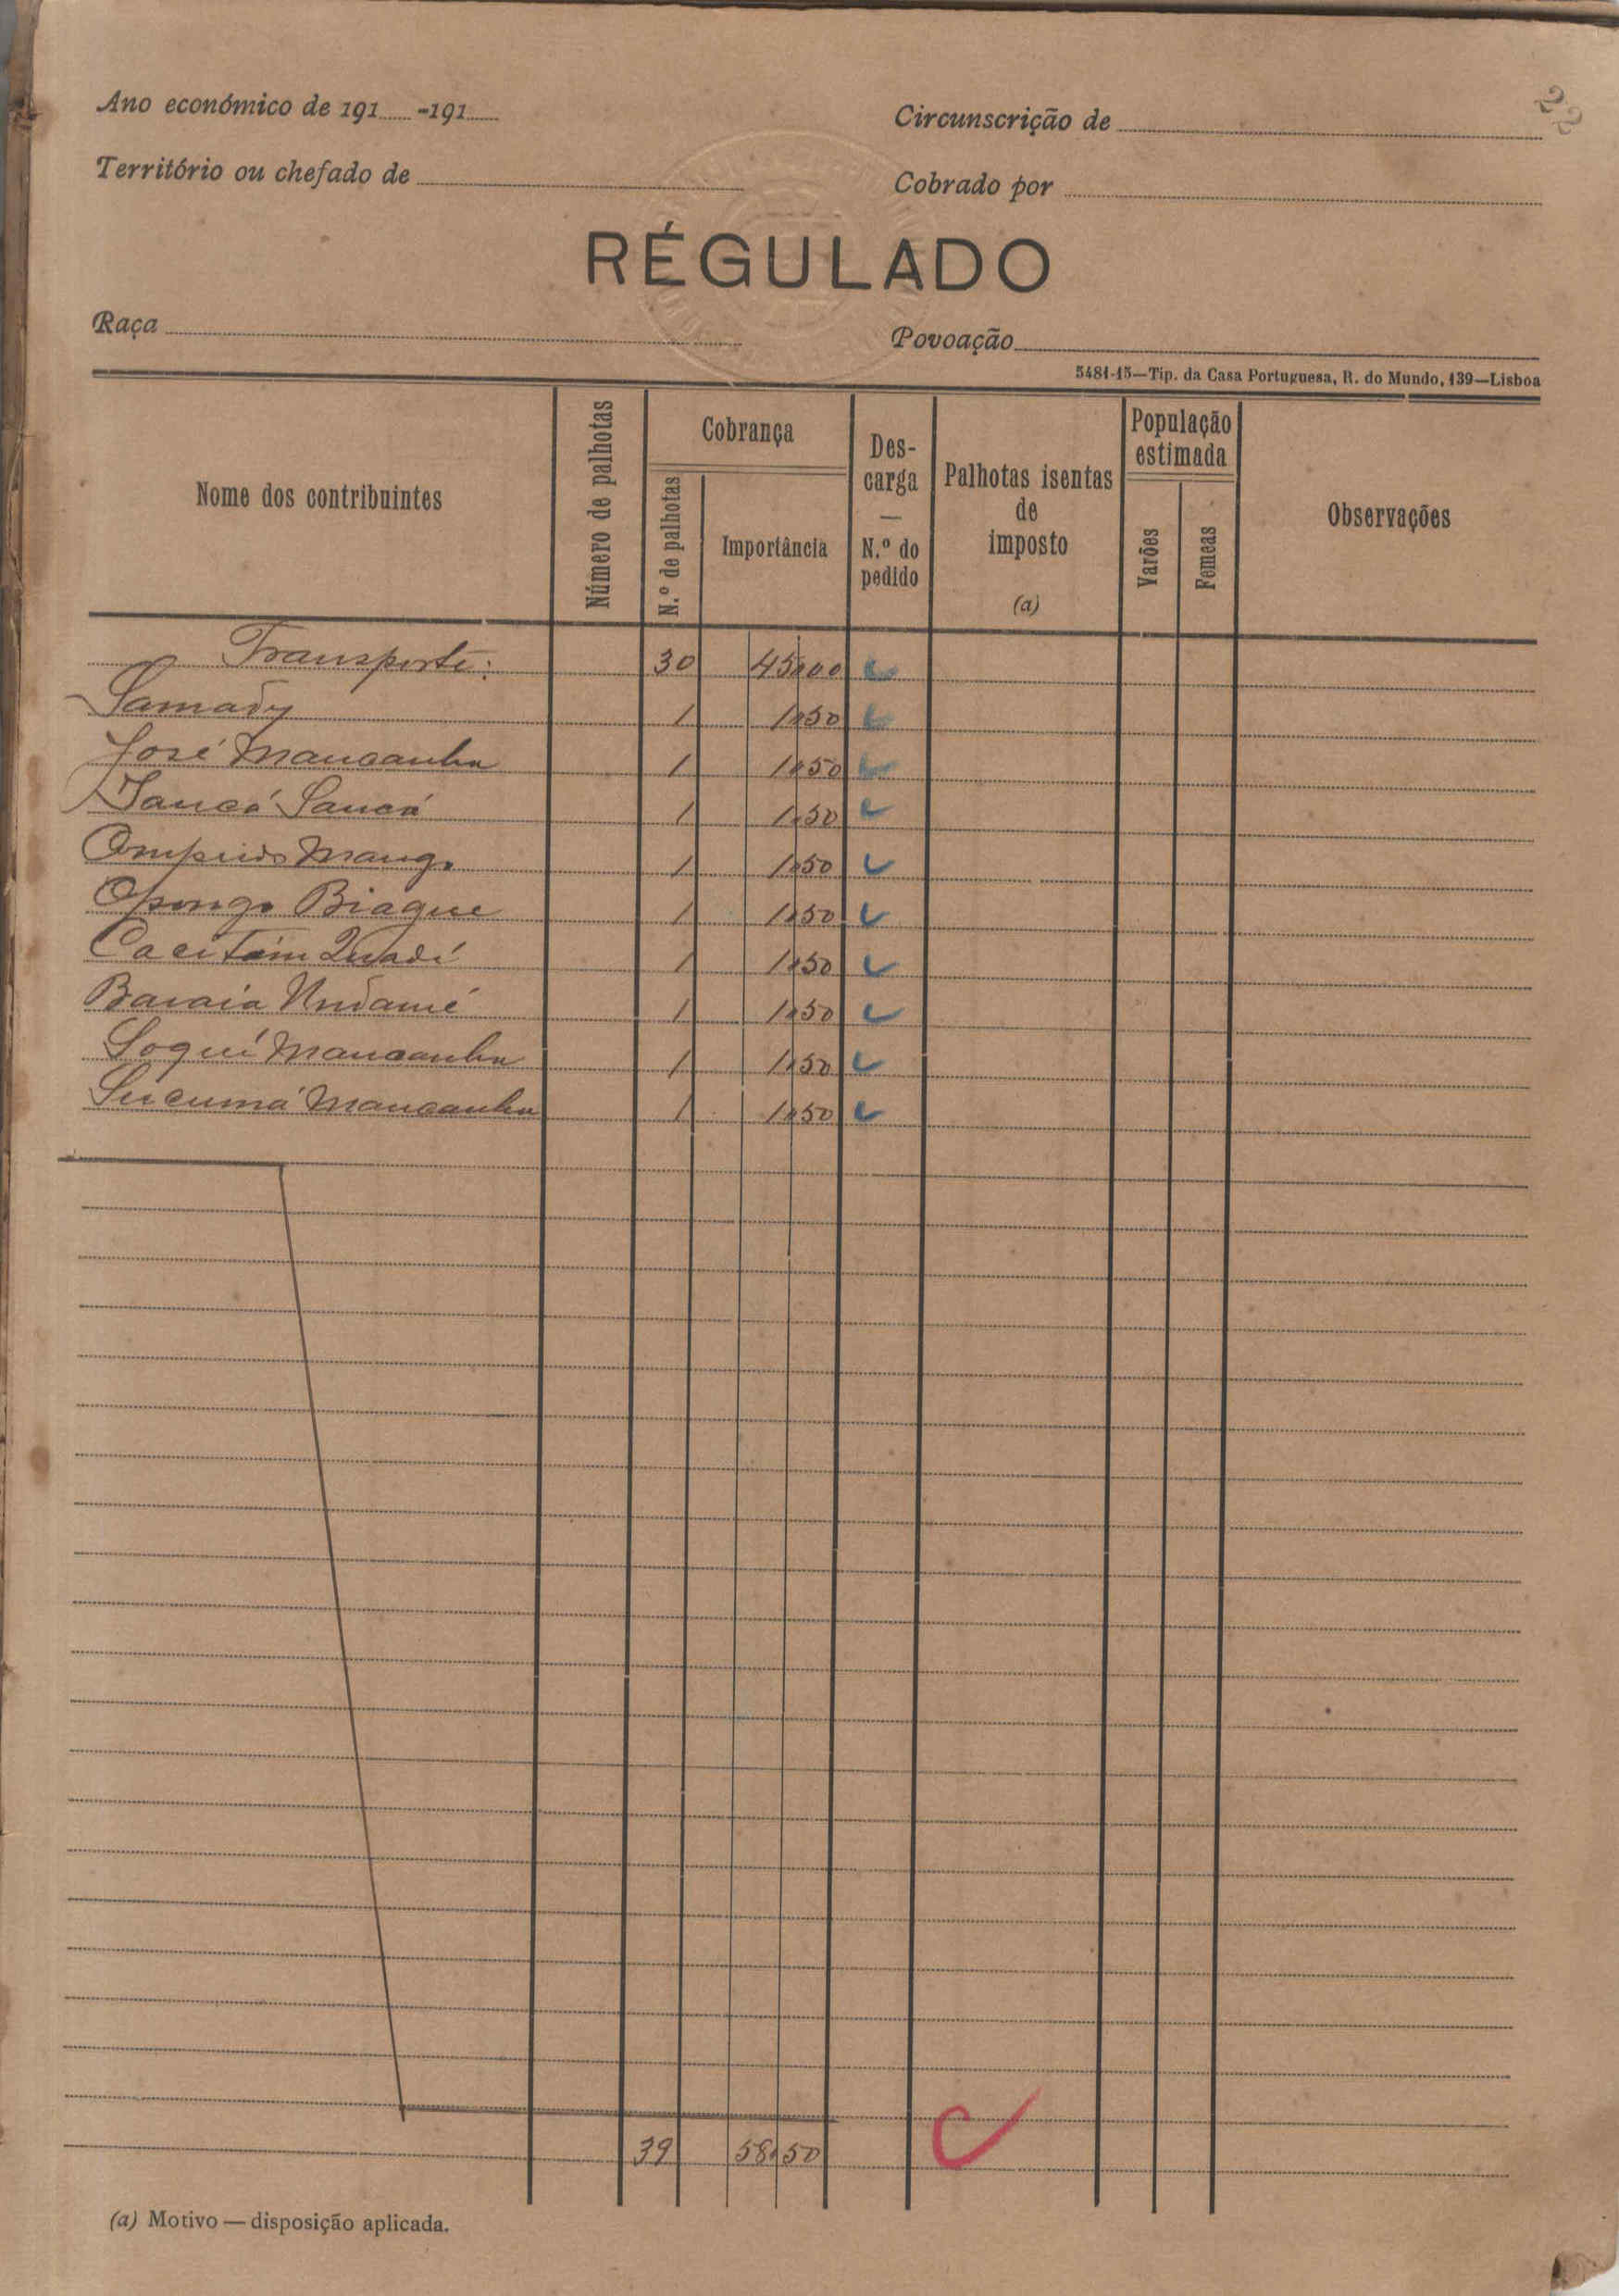 22
Ano económico de 191......-191......
Circunscrição de
Território ou chefado de
Cobrado por
RÉGULADO
Raça
Povoação
5481-15—Tip. da Casa Portuguesa, R. do Mundo, 139—Lisboa
Nome dos contribuintes
Número de palhotas
Cobrança
N.º de palhotas
Importância
Des-
carga
—
N.º do
pedido
Palhotas isentas
de
imposto
(a)
População
estimada
Varões
Femeas
Observações
Transporte: 30 45$00
Samady 1 1$50
José Mancanha 1 1$50
Sancá 1 1$50
Mango 1 1$50
Opongo Biague 1 1$50
1 1$50
1 1$50
Soquí Mancanha 1 1$50
Sucumá Mancanha 1 1$50
39 58$50
(a) Motivo — disposição aplicada.